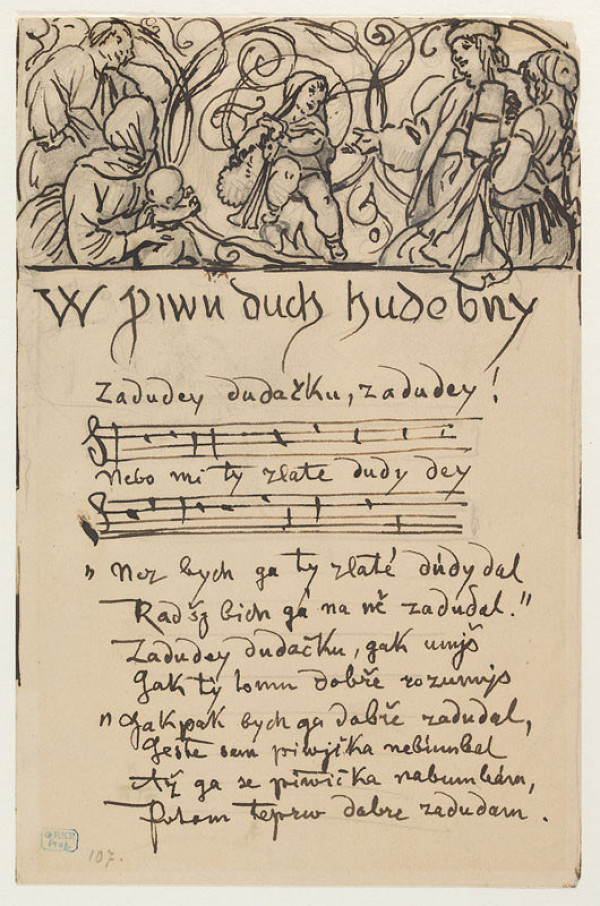 W piwu duch hudebny
Zadudey dudačku, zadudey!
Nebo mi ty zlate dudy dey
„ Nez bych ga ty zlaté dúdy dal
Radšz bich gá na ně zadudal."
Zadudey dudačku, gak umjš
Gak ty tomu dobře rozumjs
" Gakpak bych ga dobře zadudal,
Geste sem piwjčka nebumbal
Až ga se piwička nabumbám,
Potom teprw dobre zadudam.
107.